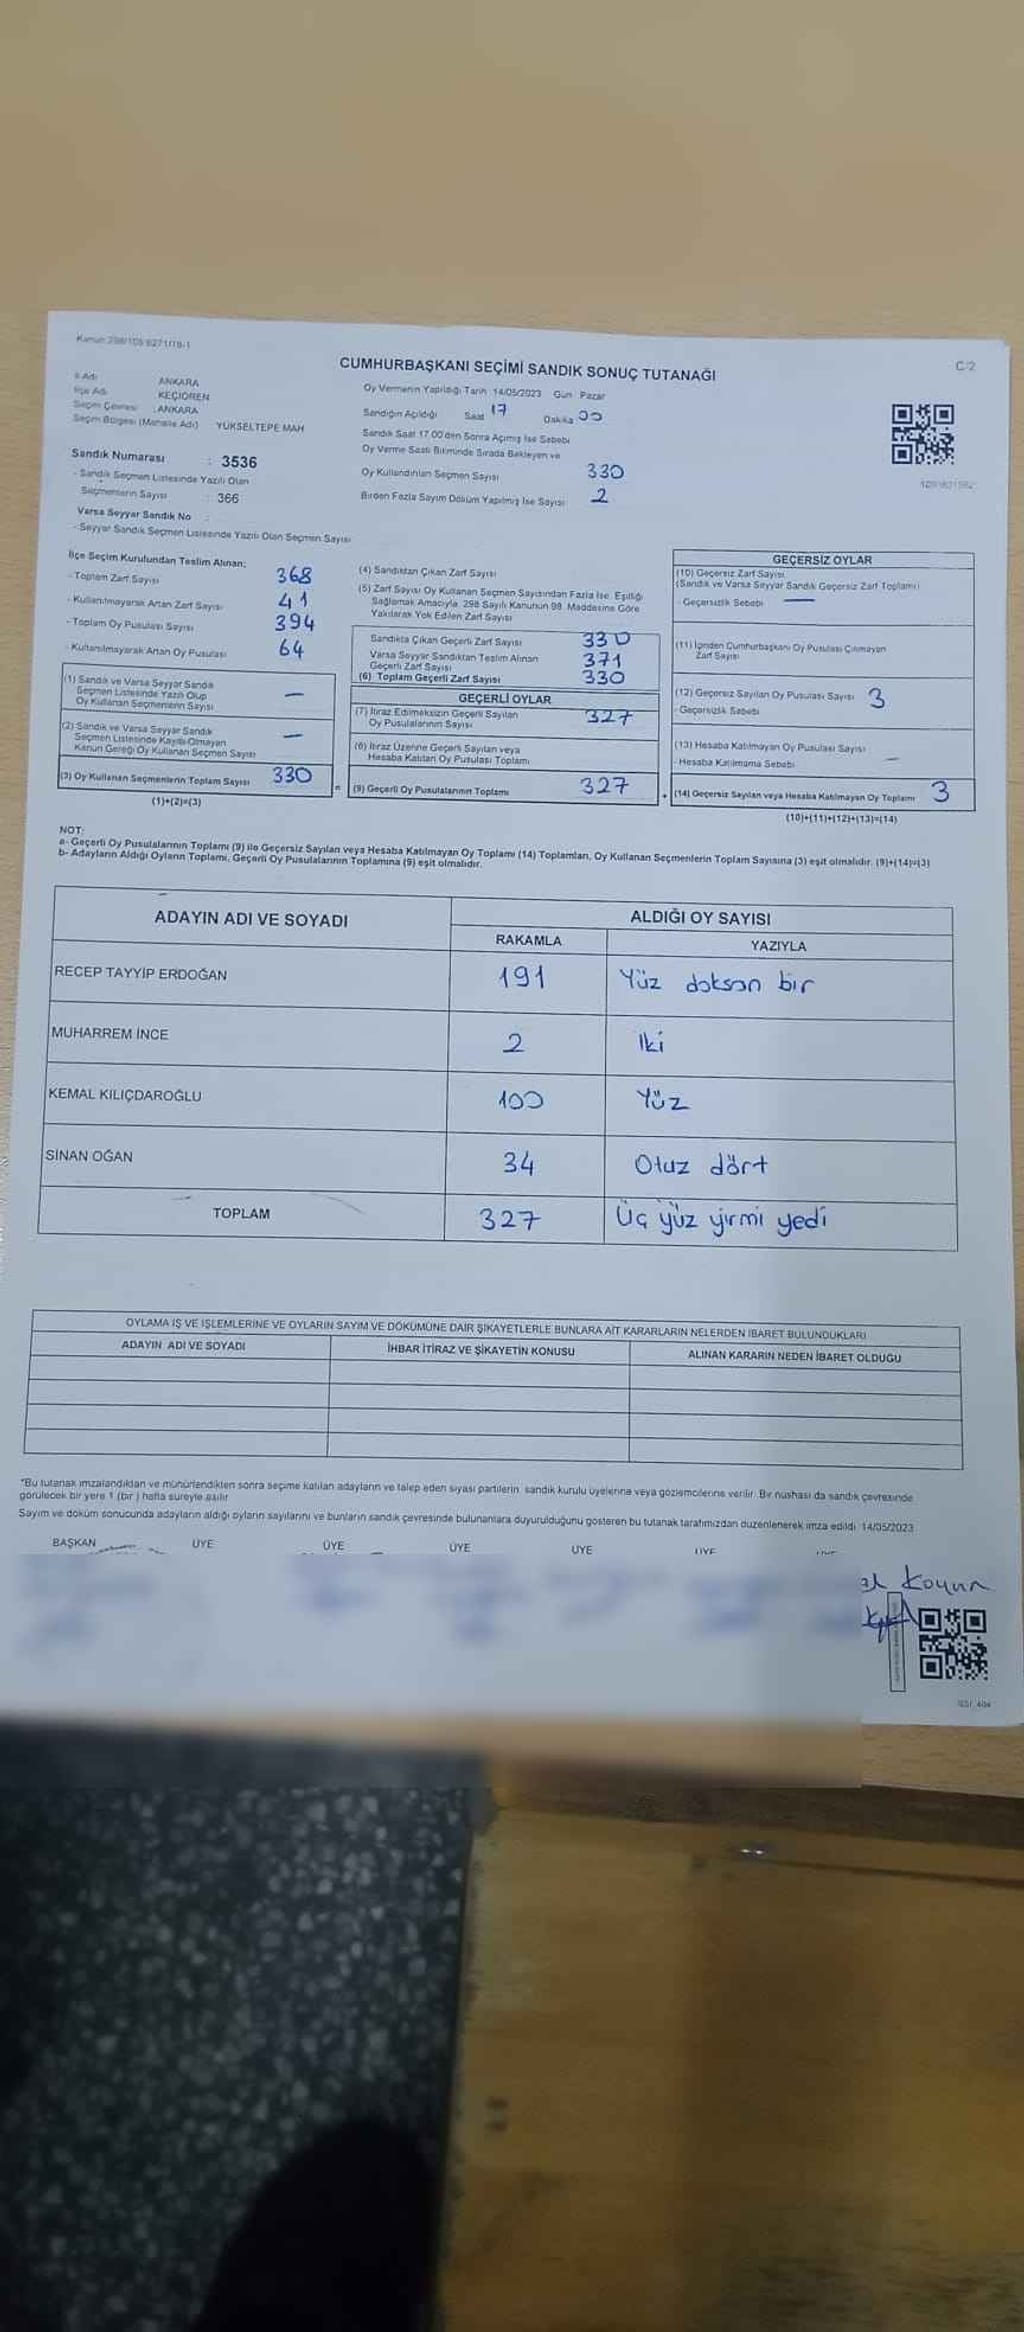 CUMHURBAŞKANI SEÇİMİ SANDIK SONUÇ TUTANAĞI
C/2
İl Adı ANKARA
İlçe Adı KEÇİÖREN
Seçim Çevresi ANKARA
Seçim Bölgesi (Mahalle Adı) YÜKSELTEPE MAH
Sandık Numarası : 3536
- Sandık Seçmen Listesinde Yazılı Olan
Seçmenlerin Sayısı : 366
Varsa Seyyar Sandık No :
- Seyyar Sandık Seçmen Listesinde Yazılı Olan Seçmen Sayısı
Oy Vermenin Yapıldığı Tarih 14/05/2023 Gün Pazar
Sandığın Açıldığı Saat 17 Dakika 00
Sandık Saat 17.00'den Sonra Açımış İse Sebebi
Oy Verme Saati Bitiminde Sırada Bekleyen ve
Oy Kullandırılan Seçmen Sayısı 330
Birden Fazla Sayım Döküm Yapılmış İse Sayısı 2
İlçe Seçim Kurulundan Teslim Alınan:
- Toplam Zarf Sayısı 368
- Kullanılmayarak Artan Zarf Sayısı 41
- Toplam Oy Pusulası Sayısı 394
- Kullanılmayarak Artan Oy Pusulası 64
(1) Sandık ve Varsa Seyyar Sandık
Seçmen Listesinde Yazılı Olup
Oy Kullanan Seçmenlerin Sayısı —
(2) Sandık ve Varsa Seyyar Sandık
Seçmen Listesinde Kayıtlı Olmayan
Kanun Gereği Oy Kullanan Seçmen Sayısı —
(3) Oy Kullanan Seçmenlerin Toplam Sayısı 330
(1)+(2)=(3)
(4) Sandıktan Çıkan Zarf Sayısı
(5) Zarf Sayısı Oy Kullanan Seçmen Sayısından Fazla İse, Eşitliği
Sağlamak Amacıyla, 298 Sayılı Kanunun 98. Maddesine Göre
Yakılarak Yok Edilen Zarf Sayısı
Sandıkta Çıkan Geçerli Zarf Sayısı 330
Varsa Seyyar Sandıktan Teslim Alınan
Geçerli Zarf Sayısı 371
(6) Toplam Geçerli Zarf Sayısı 330
GEÇERLİ OYLAR
(7) İtiraz Edilmeksizin Geçerli Sayılan
Oy Pusulalarının Sayısı 327
(8) İtiraz Üzerine Geçerli Sayılan veya
Hesaba Katılan Oy Pusulası Toplamı
= (9) Geçerli Oy Pusulalarının Toplamı 327
GEÇERSİZ OYLAR
(10) Geçersiz Zarf Sayısı
(Sandık ve Varsa Seyyar Sandık Geçersiz Zarf Toplamı)
- Geçersizlik Sebebi —
(11) İçinden Cumhurbaşkanı Oy Pusulası Çıkmayan
Zarf Sayısı
(12) Geçersiz Sayılan Oy Pusulası Sayısı 3
- Geçersizlik Sebebi
(13) Hesaba Katılmayan Oy Pusulası Sayısı
- Hesaba Katılmama Sebebi —
+ (14) Geçersiz Sayılan veya Hesaba Katılmayan Oy Toplamı 3
(10)+(11)+(12)+(13)=(14)
NOT:
a- Geçerli Oy Pusulalarının Toplamı (9) ile Geçersiz Sayılan veya Hesaba Katılmayan Oy Toplamı (14) Toplamları, Oy Kullanan Seçmenlerin Toplam Sayısına (3) eşit olmalıdır. (9)+(14)=(3)
b- Adayların Aldığı Oyların Toplamı, Geçerli Oy Pusulalarının Toplamına (9) eşit olmalıdır.
ADAYIN ADI VE SOYADI ALDIĞI OY SAYISI
RAKAMLA YAZIYLA
RECEP TAYYİP ERDOĞAN 191 Yüz doksan bir
MUHARREM İNCE 2 İki
KEMAL KILIÇDAROĞLU 100 Yüz
SİNAN OĞAN 34 Otuz dört
TOPLAM 327 Üç yüz yirmi yedi
OYLAMA İŞ VE İŞLEMLERİNE VE OYLARIN SAYIM VE DÖKÜMÜNE DAİR ŞİKAYETLERLE BUNLARA AİT KARARLARIN NELERDEN İBARET BULUNDUKLARI
ADAYIN ADI VE SOYADI İHBAR İTİRAZ VE ŞİKAYETİN KONUSU ALINAN KARARIN NEDEN İBARET OLDUĞU
*Bu tutanak imzalandıktan ve mühürlendikten sonra seçime katılan adayların ve talep eden siyasi partilerin sandık kurulu üyelerine veya gözlemcilerine verilir. Bir nüshası da sandık çevresinde
görülecek bir yere 1 (bir) hafta süreyle asılır
Sayım ve döküm sonucunda adayların aldığı oyların sayılarını ve bunların sandık çevresinde bulunanlara duyurulduğunu gösteren bu tutanak tarafımızdan düzenlenerek imza edildi. 14/05/2023
BAŞKAN ÜYE ÜYE ÜYE ÜYE ÜYE
Koyun